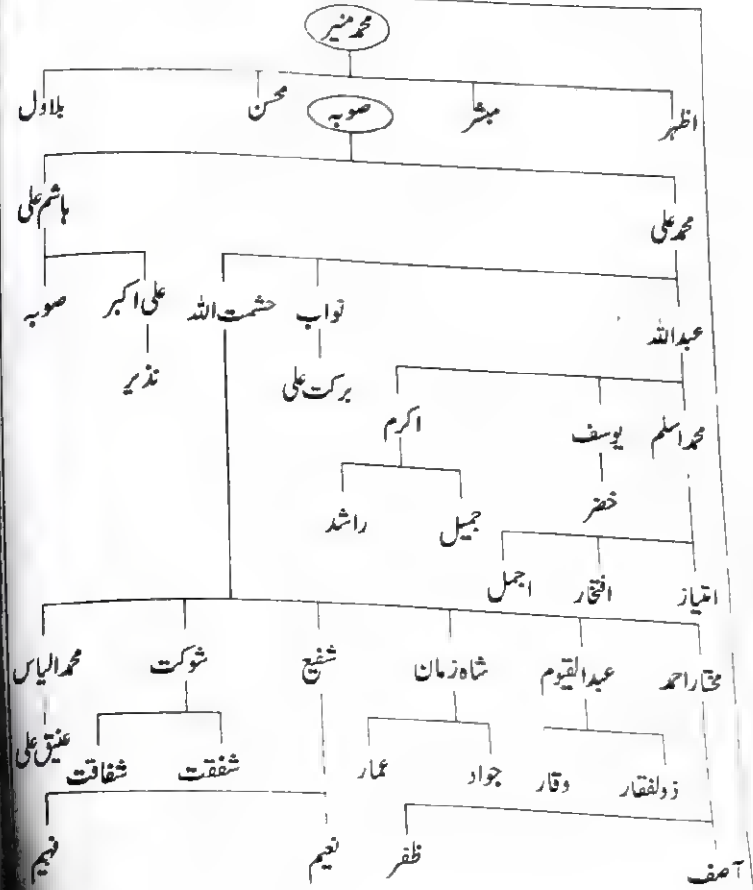 محمد منیر
اظہر مبشر محسن بلاول
صوبہ
محمد علی ہاشم علی
عبداللہ نواب حشمت اللہ علی اکبر صوبہ
برکت علی نذیر
محمد اسلم یوسف اکرم
خضر جمیل راشد
امتیاز افتخار اجمل
مختار احمد عبدالقیوم شاہ زمان شفیع شوکت محمد الیاس
ذولفقار وقار جواد عمار شفقت شفاقت عتیق علی
آصف ظفر نعیم